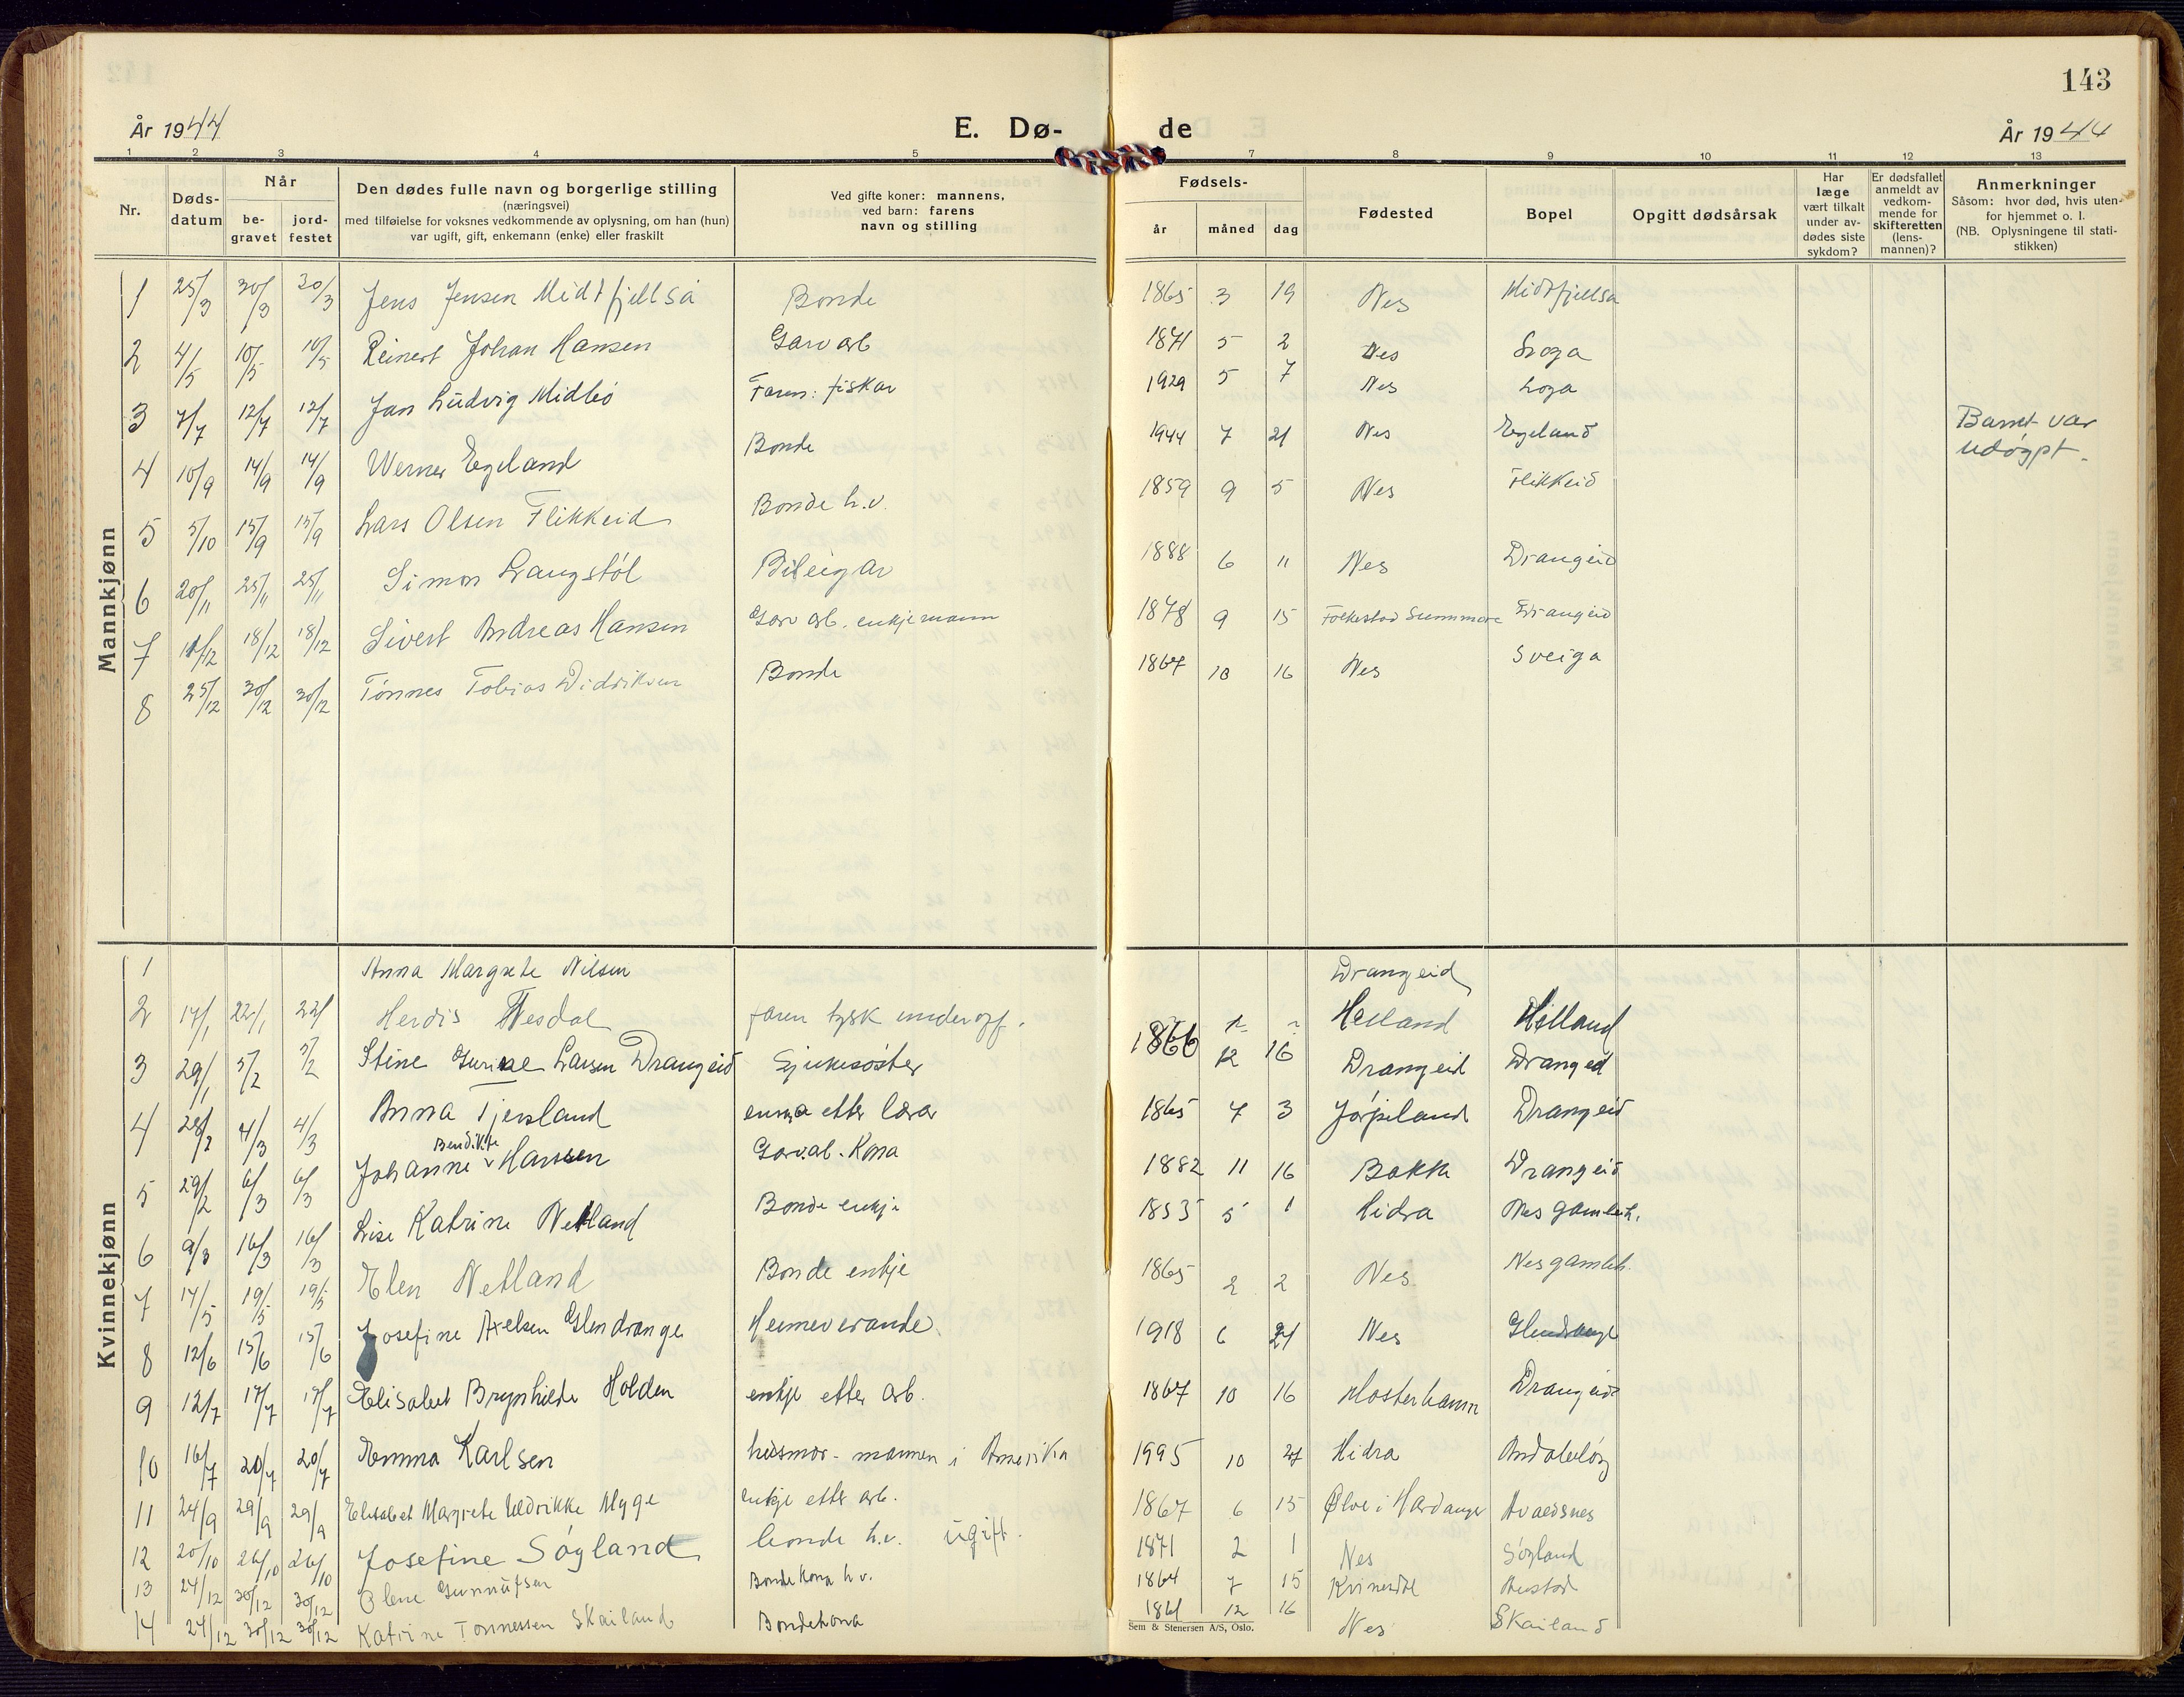 143
År 1944 E. Dø- de År 1944
1 2 3 4 5 7 8 9 10 11 12 13
Nr.
Døds-
datum
Når
be-
gravet
jord-
festet
Den dødes fulle navn og borgerlige stilling
(næringsvei)
med tilføielse for voksnes vedkommende av oplysning, om han (hun)
var ugift, gift, enkemann (enke) eller fraskilt
Ved gifte koner: mannens,
ved barn: farens
navn og stilling
Fødsels-
år måned dag
Fødested
Bopel
Opgitt dødsårsak
Har
læge
vært tilkalt
under av-
dødes siste
sykdom?
Er dødsfallet
anmeldt av
vedkom-
mende for
skifteretten
(lens-
mannen)?
Anmerkninger
Såsom: hvor død, hvis uten-
for hjemmet o. l.
(NB. Oplysningene til stati-
stikken)
Mannkjønn
1 25/3 30/3 30/3 Jens Jensen Midtfjellså Bonde 1865 3 19 Nes Midtfjellså
2 4/5 10/5 10/5 Reinert Johan Hansen Garv arb 1871 5 2 Nes Loga
3 7/7 12/7 12/7 Jan Ludvig Midbö Faren: fiskar 1929 5 7 Nes Loga
4 10/9 14/9 14/9 Werner Egeland Bonde 1944 7 21 Nes Egeland Barnet var
udøypt.
5 5/10 15/9 15/9 Lars Olsen Flikkeid Bonde h.v. 1859 9 5 Nes Flikkeid
6 20/11 25/11 25/11 Simon Langstöl Bileigar 1888 6 11 Nes Drangeid
7 10/12 18/12 18/12 Sivert Andreas Hansen Garv arb. enkjemann 1878 9 15 Folkestad Sunnmøre Drangeid
8 25/12 30/12 30/12 Tönnes Tobias Didriksen Bonde 1867 10 16 Nes Sveiga
Kvinnekjønn
1 Anna Margrete Nilsen Drangeid
2 17/1 22/1 22/1 Herdis Nesdal faren tysk underoff. Helland Helland
3 29/1 5/2 5/2 Stine Gurine Larsen Drangeid Sjukesöster 1866 12 16 Drangeid Drangeid
4 28/2 4/3 4/3 Anna Tjersland enkja etter lærar 1865 7 3 Jörpeland Drangeid
5 29/2 6/3 6/3 Johanne Bendikte Hansen Garv.arb. Kona 1882 11 16 Bakke Drangeid
6 9/3 16/3 16/3 Lise Katrine Netland Bonde enkje 1853 5 1 Hidra Nes gamleh.
7 14/5 19/5 19/5 Elen Netland Bonde enkje 1865 2 2 Nes Nes gamleh.
8 12/6 15/6 15/6 Josefine Axelsen Glendrange Heimeverande 1918 6 21 Nes Glendrange
9 12/7 17/7 17/7 Elisabet Brynhilde Holden enkje etter arb. 1867 10 16 Mosterhamn Drangeid
10 16/7 20/7 20/7 Emma Karlsen husmor - mannen i Amerika 1995 10 27 Hidra
11 24/9 29/9 29/9 Elisabet Margrete Uldrikke Myge enkje etter arb. 1867 6 15 Ølve i Hardanger Avaldsnes
12 20/10 26/10 26/10 Josefine Søyland bonde h.v. ugift. 1871 2 1 Nes Søyland
13 24/12 30/12 30/12 Olene Gunnufsen Bondekona h v. 1864 7 15 Kvinesdal
14 24/12 30/12 30/12 Katrine Tönnessen Skailand Bondekona 1861 12 16 Nes Skailand
Sem & Stenersen A/S, Oslo.